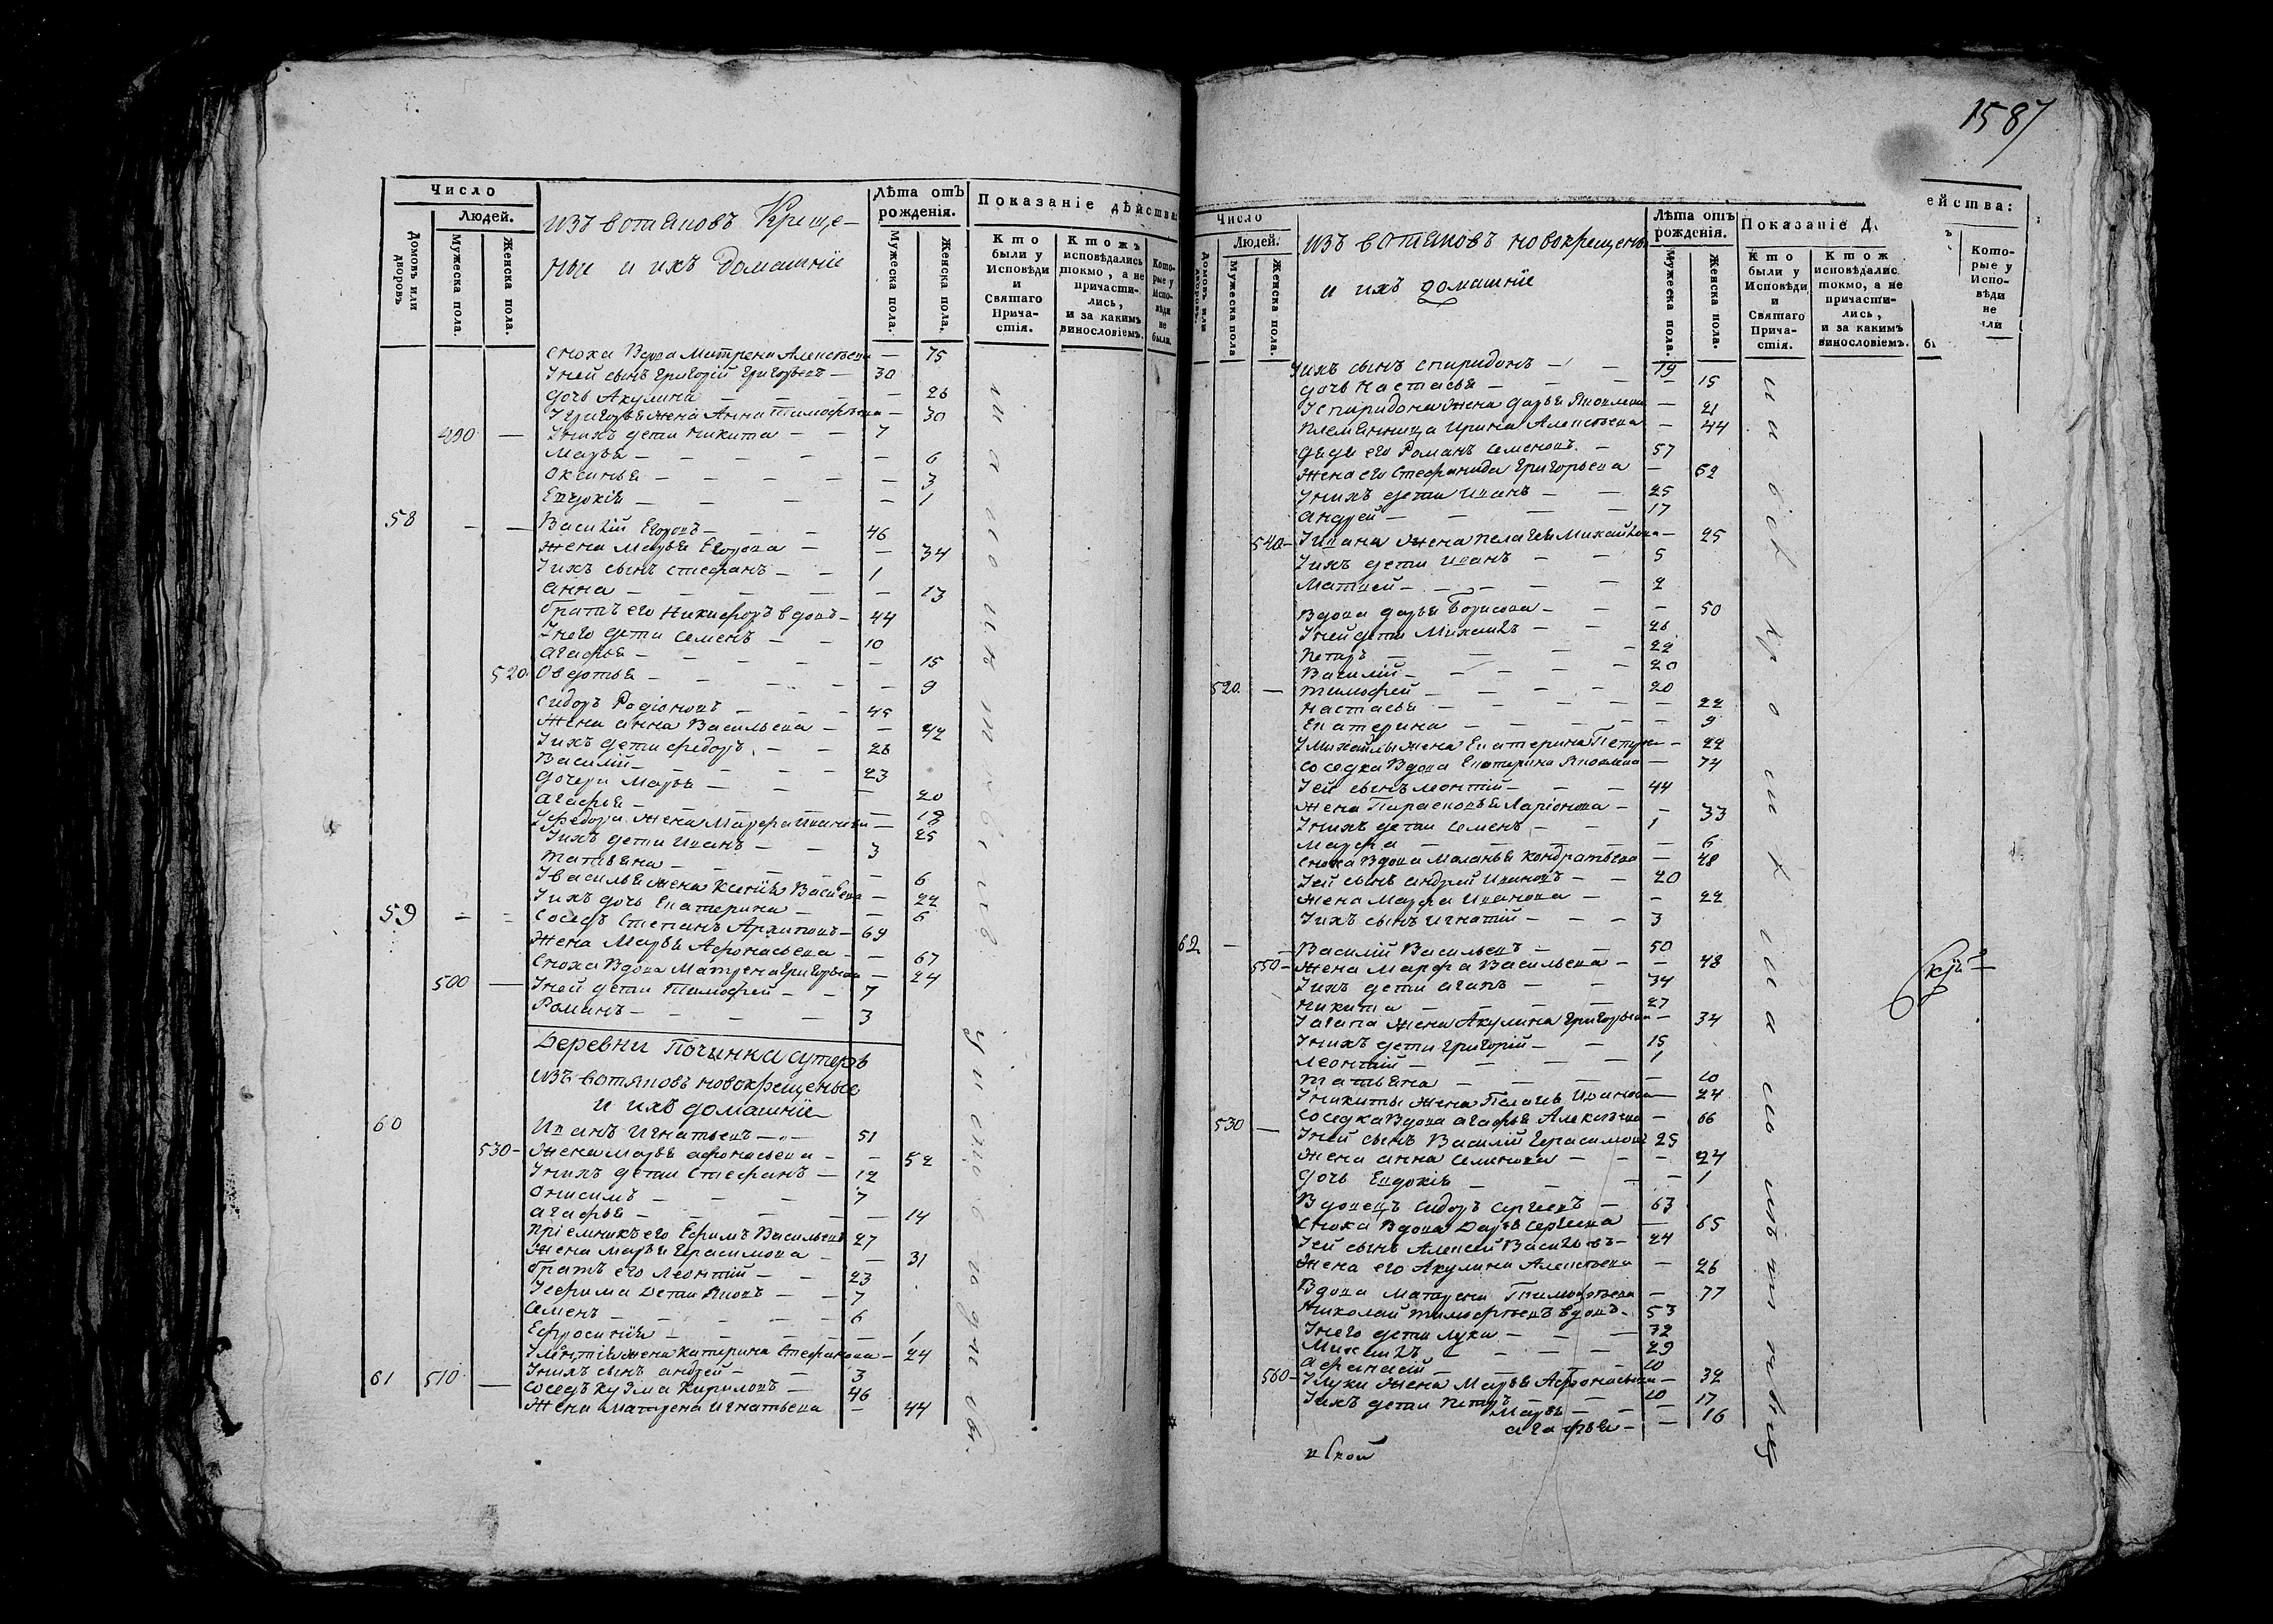 1587
Число
Людей.
Домовъ или дворовъ
Мужеска пола.
Женска пола.
изъ вотяковъ Креще-
ные и ихъ домашнїе
Лѣта отъ рожденїя.
Мужеска пола.
Женска пола.
Показанїе дѣйства:
Кто были у Исповѣди и Святаго Причастїя.
Ктожъ исповѣдались токмо, а не причастились, и за какимъ винословїемъ.
Которые у Исповѣди не были.
сноха Вдова Матрена Алексѣева — 75
Уней сынъ Григорїй Григорьевъ — 30
дочь Акулина — 26
У Григорья жена Анна Тимофѣева — 30
490 — Унихъ дети Никита — 7
Марья — 6
Оксинья — 3
Евдокїя — 1
58 — — Василїй Егоровъ — 46
Жена Марья Егорова — 34
Уихъ сынъ Стефанъ — 1
Анна — 13
братъ его Никифоръ вдовъ — 44
Унего дети Семенъ — 10
Агафья — 15
520 Овдотья — 9
Сидоръ Родїоновъ — 45
Жена Анна Васильева — 42
Уихъ дети Федоръ — 26
Василїй — 23
дочери Марья — 20
Агафья — 18
У Федора жена Марфа Иванова — 25
Уихъ дети Иванъ — 3
Татьяна — 6
У Василья жена Ксенїя Васильева — 22
Уихъ дочь Екатерина — 6
59 — — Соседъ Степанъ Архиповъ — 69
Жена Марья Афонасьева — 67
Сноха Вдова Матрена Григорьева — 24
500 — Уней дети Тимофей — 7
Романъ — 3
Деревни Починка
изъ вотяковъ новокрещеные
и ихъ домашнїе
60 Иванъ Игнатьевъ — 51
530 — Жена Марья Афонасьева — 52
Унихъ дети Стефанъ — 12
Онисимъ — 7
Агафья — 14
Прїемникъ его Ефимъ Васильевъ 27
Жена Марья Герасимова — 31
братъ его Леонтїй — 23
У Ефима дети Яковъ — 7
Семенъ — 6
Ефросинїя — 1
У Леонтїя жена Катерина Стефанова — 24
Унихъ сынъ Андрей — 3
61 510 — Соседъ Кузма Кириловъ — 46
Жена Матрена Игнатьева — 44
Число
Людей.
Домовъ или дворовъ.
Мужеска пола
Женска пола.
изъ вотяковъ новокрещены
и ихъ домашнїе
Лѣта отъ рожденїя.
Мужеска пола.
Женска пола.
Показанїе Д.
Кто были у Исповѣди и Святаго Причастїя.
Ктож исповѣдалис. токмо, а не причастились, и за какимъ винословїемъ.
ействa:
Которые у Исповѣди не
Уихъ сынъ Спиридонъ — 19
дочь Настасья — 15
У Спиридона жена Дарья Яковлева — 21
племянница Ирина Алексѣева — 44
дядя его Романъ Семеновъ — 57
Жена его Стефанида Григорьева — 52
Унихъ дети Иванъ — 25
Андрей — 17
540 — У Ивана жена Пелагея Михайлова — 25
Уихъ дети Иванъ — 5
Матвей — 2
Вдова Дарья Борисова — 50
Уней дети Михаилъ — 26
Петръ — 22
Василїй — 20
520 — Тимофей — 20
Настасья — 22
Екатерина — 9
У Михайлы жена Екатерина Петрова — 22
Соседка Вдова Екатерина Яковлева — 74
Уей сынъ Леонтїй — 44
Жена Парасковья Ларїонова — 33
Унихъ дети Семенъ — 1
Марфа — 6
сноха Вдова Маланья Кондратьева — 48
Уей сынъ Андрей Ивановъ — 20
Жена Марфа Иванова — 22
Уихъ сынъ Игнатїй — 3
62 — — Василїй Васильевъ — 50
550 — Жена Марфа Васильева — 48
Уихъ дети Агапъ — 34
Никита — 27
У Агапа жена Акулина Григорьева — 34
Унихъ дети Григорїй — 15
Леонтїй — 1
Татьяна — 10
У Никиты жена Пелагея Иванова — 24
530 — Соседка Вдова Агафья Алексѣева — 66
Уней сынъ Василїй Герасимовъ 25
Жена Анна Семенова — 24
дочь Евдокїя — 1
Вдовецъ Сидоръ Сергеевъ — 63
Сноха Вдова Дарья Сергеева — 65
Уей сынъ Алексей Васильевъ — 24
Жена его Акулина Алексѣева — 26
Вдова Матрена Тимофѣева — 77
Николай Тимофѣевъ вдовъ — 53
Унего дети Лука — 32
Михаилъ — 29
Афанасїй — 10
560 — У Луки жена Марья Афонасьева — 32
Уихъ дети Петръ — 10
Марья — 17
Агафья — 16